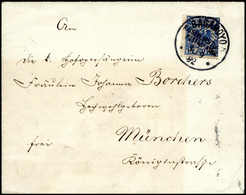 An
die k. Hofopernsängerin
Fräulein Johanna Borchers
Hochwohlgeboren
frei
München
Königinstraße